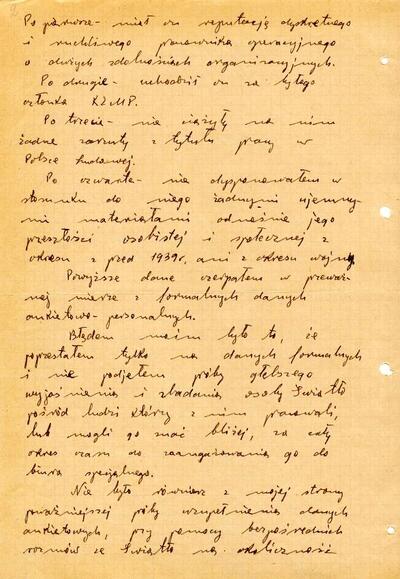 Po pierwsze - miał on reputację dyskretnego
i ruchliwego pracownika operacyjnego
o dużych zdolnościach organizacyjnych.
Po drugie - uchodził on za byłego
członka KZMP.
Po trzecie - nie ciążyły na nim
żadne zarzuty z tytułu pracy w
Polsce Ludowej.
Po czwarte - nie dysponowałem w
stosunku do niego żadnymi ujemny-
mi materiałami odnośnie jego
przeszłości osobistej i społecznej z
okresu z przed 1939r. ani z okresu wojny.
Powyższe dane czerpałem w przeważ-
nej mierze z formalnych danych
ankietowo-personalnych.
Błędem moim było to, że
poprzestałem tylko na danych formalnych
i nie podjąłem próby głębszego
wyjaśnienia i zbadania osoby Światło
pośród ludzi którzy z nim pracowali,
lub mogli go znać bliżej, za cały
okres czasu do zaangażowania go do
biura specjalnego.
Nie było również z mojej strony
poważniejszej próby uzupełnienia danych
ankietowych, przy pomocy bezpośrednich
rozmów ze Światło na okoliczność